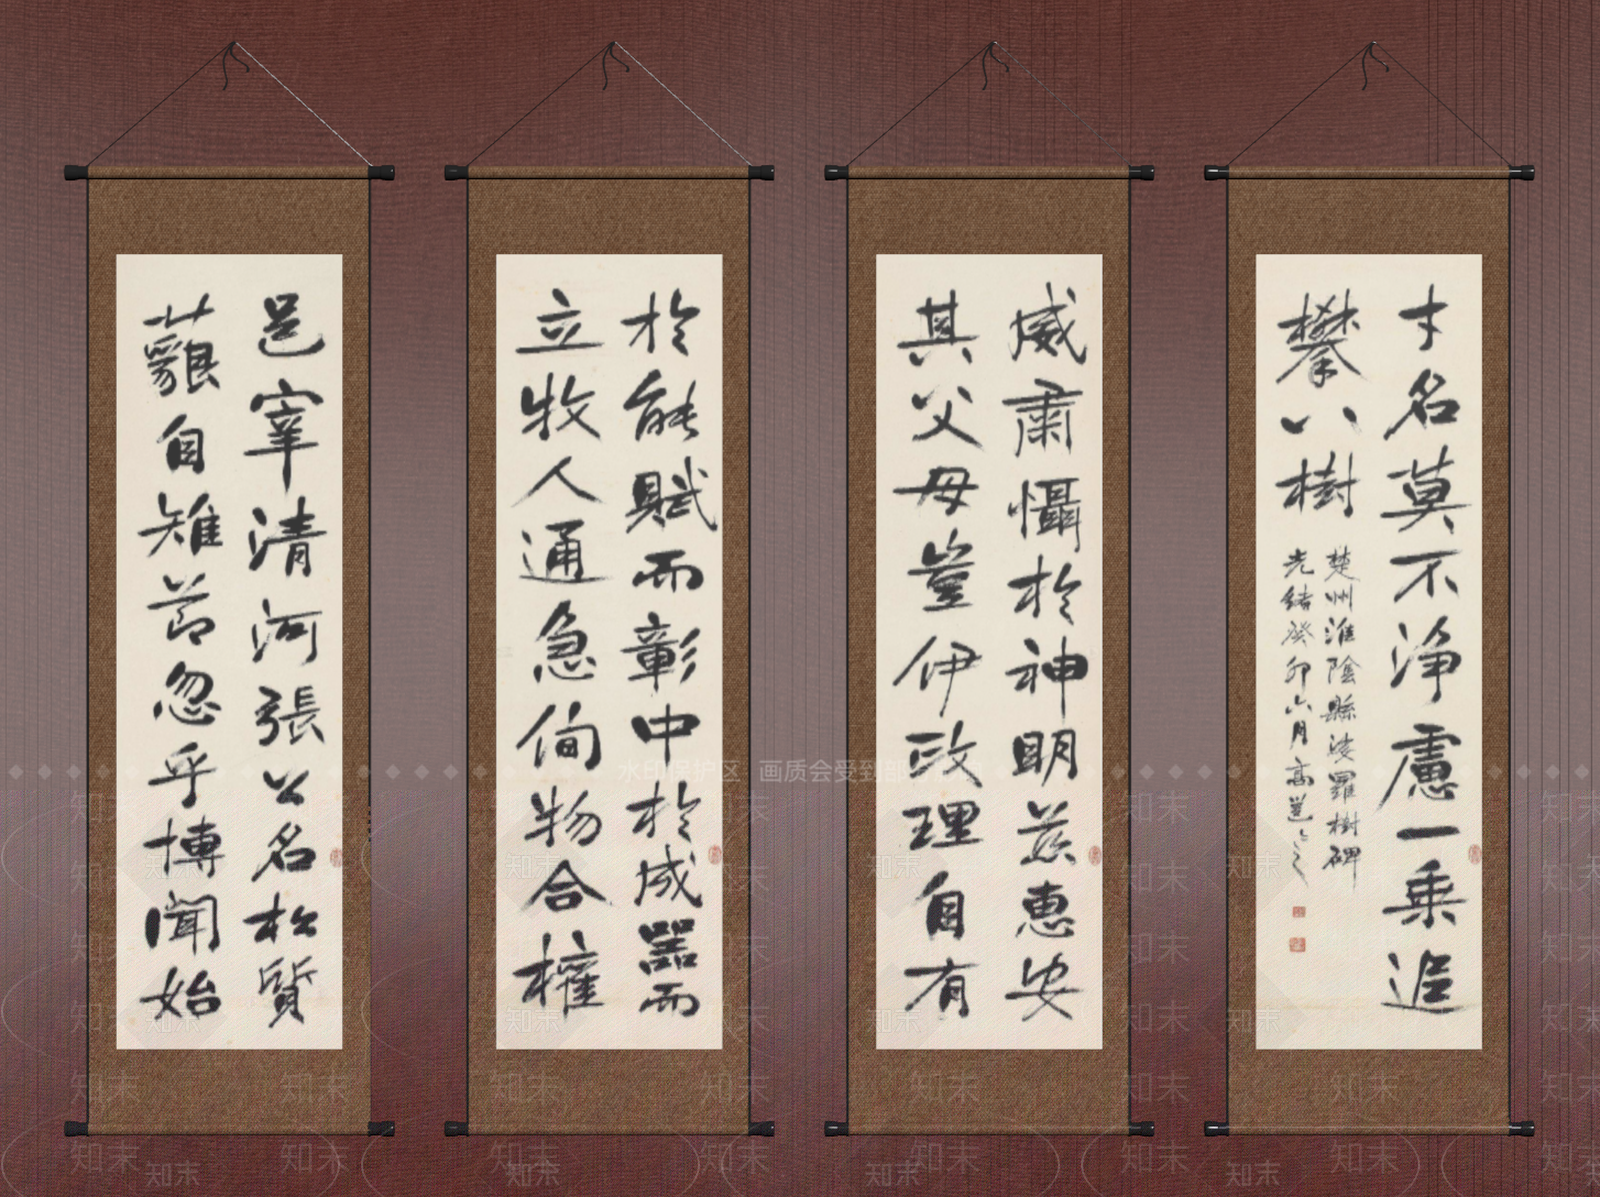 邑宰清河張公名松質
藐自雅莭忽乎博聞始
於能賦而彰中於成器而
立牧人通急侚物合權
威肅懾於神明慈惠安
其父母豈伊政理自有
才名莫不淨慮一乘追
攀八樹
楚州淮陰縣婆羅樹碑
光緒癸卯六月高邕之
水印保护区 画质会受到部
知末